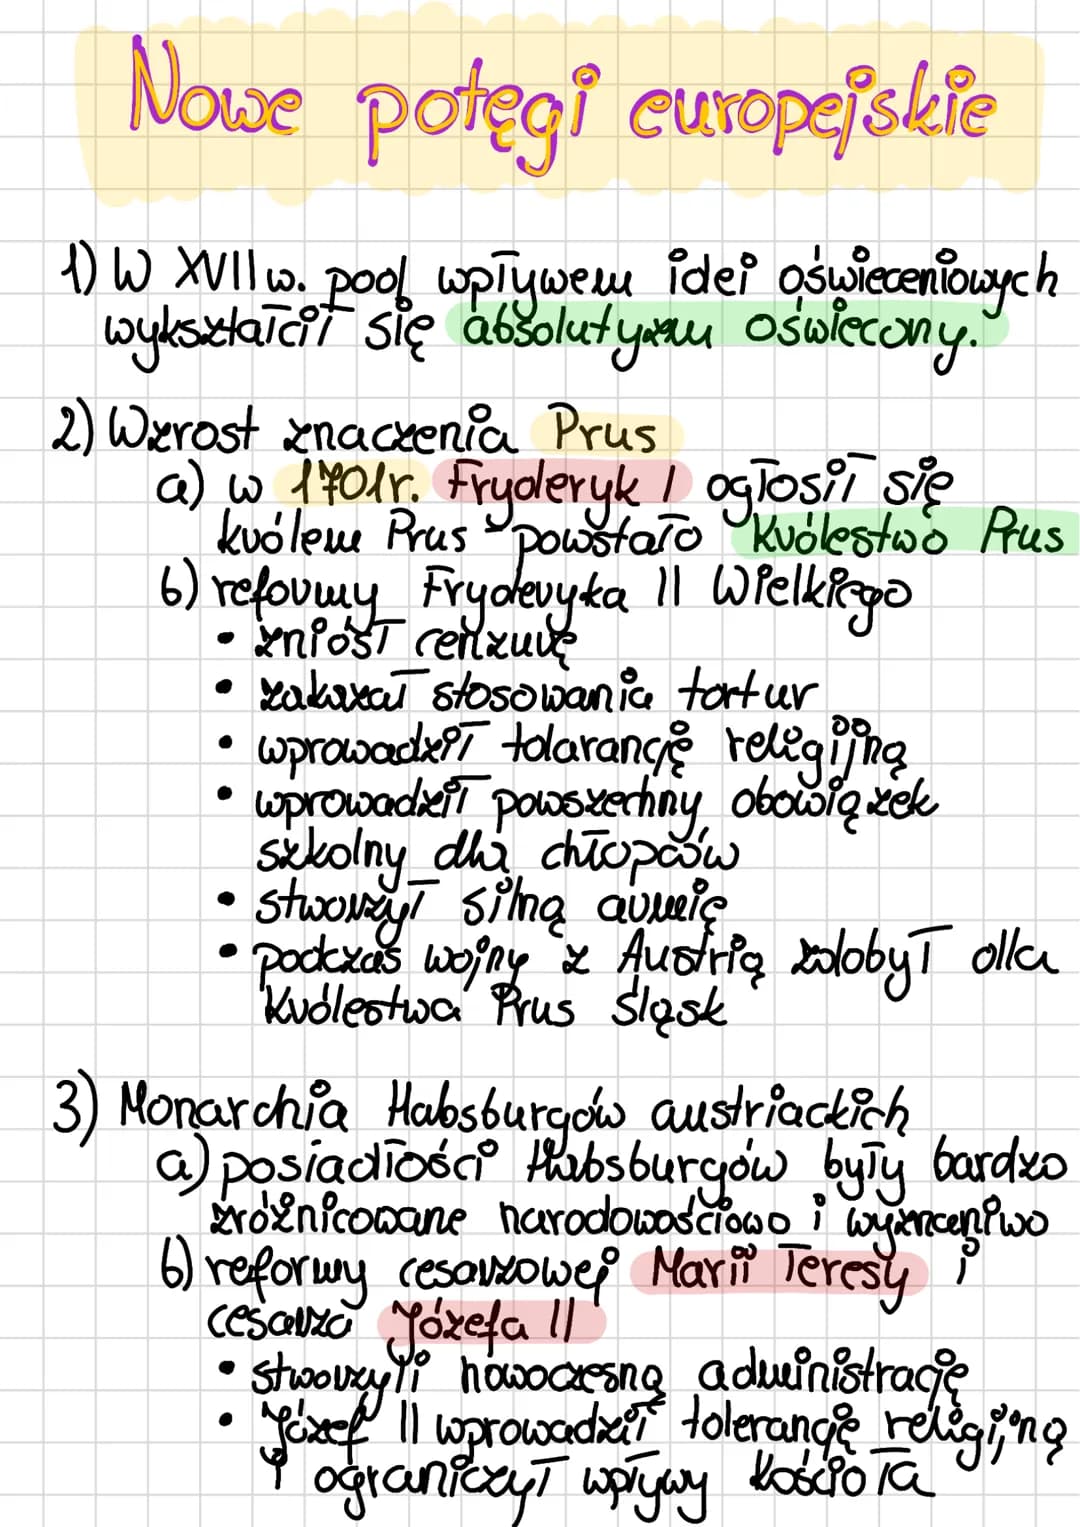 Nowe potęgi europejskie
1) W XVII w. pod wpływem idei oświeceniowych
wykształcił się absolutyzm oświecony.
2) Wzrost znaczenia Prus
a) w 1701r. Fryderyk I ogłosił się
królem Prus - powstało Królestwo Prus
b) reformy Fryderyka II Wielkiego
• zniósł cenzurę
• zakazał stosowania tortur
• wprowadził tolarancję religijną
• wprowadził powszechny obowiązek
szkolny dla chłopców
• stworzył silną armię
• podczas wojny z Austrią zdobył dla
Królestwa Prus Śląsk
3) Monarchia Habsburgów austriackich
a) posiadłości Habsburgów były bardzo
zróżnicowane narodowościowo i wyznaniwo
b) reformy cesarzowej Marii Teresy i
cesarza Józefa II
• stworzyli nowoczesną administrację
• Józef II wprowadził tolerancję religijną
i ograniczył wpływy Kościoła